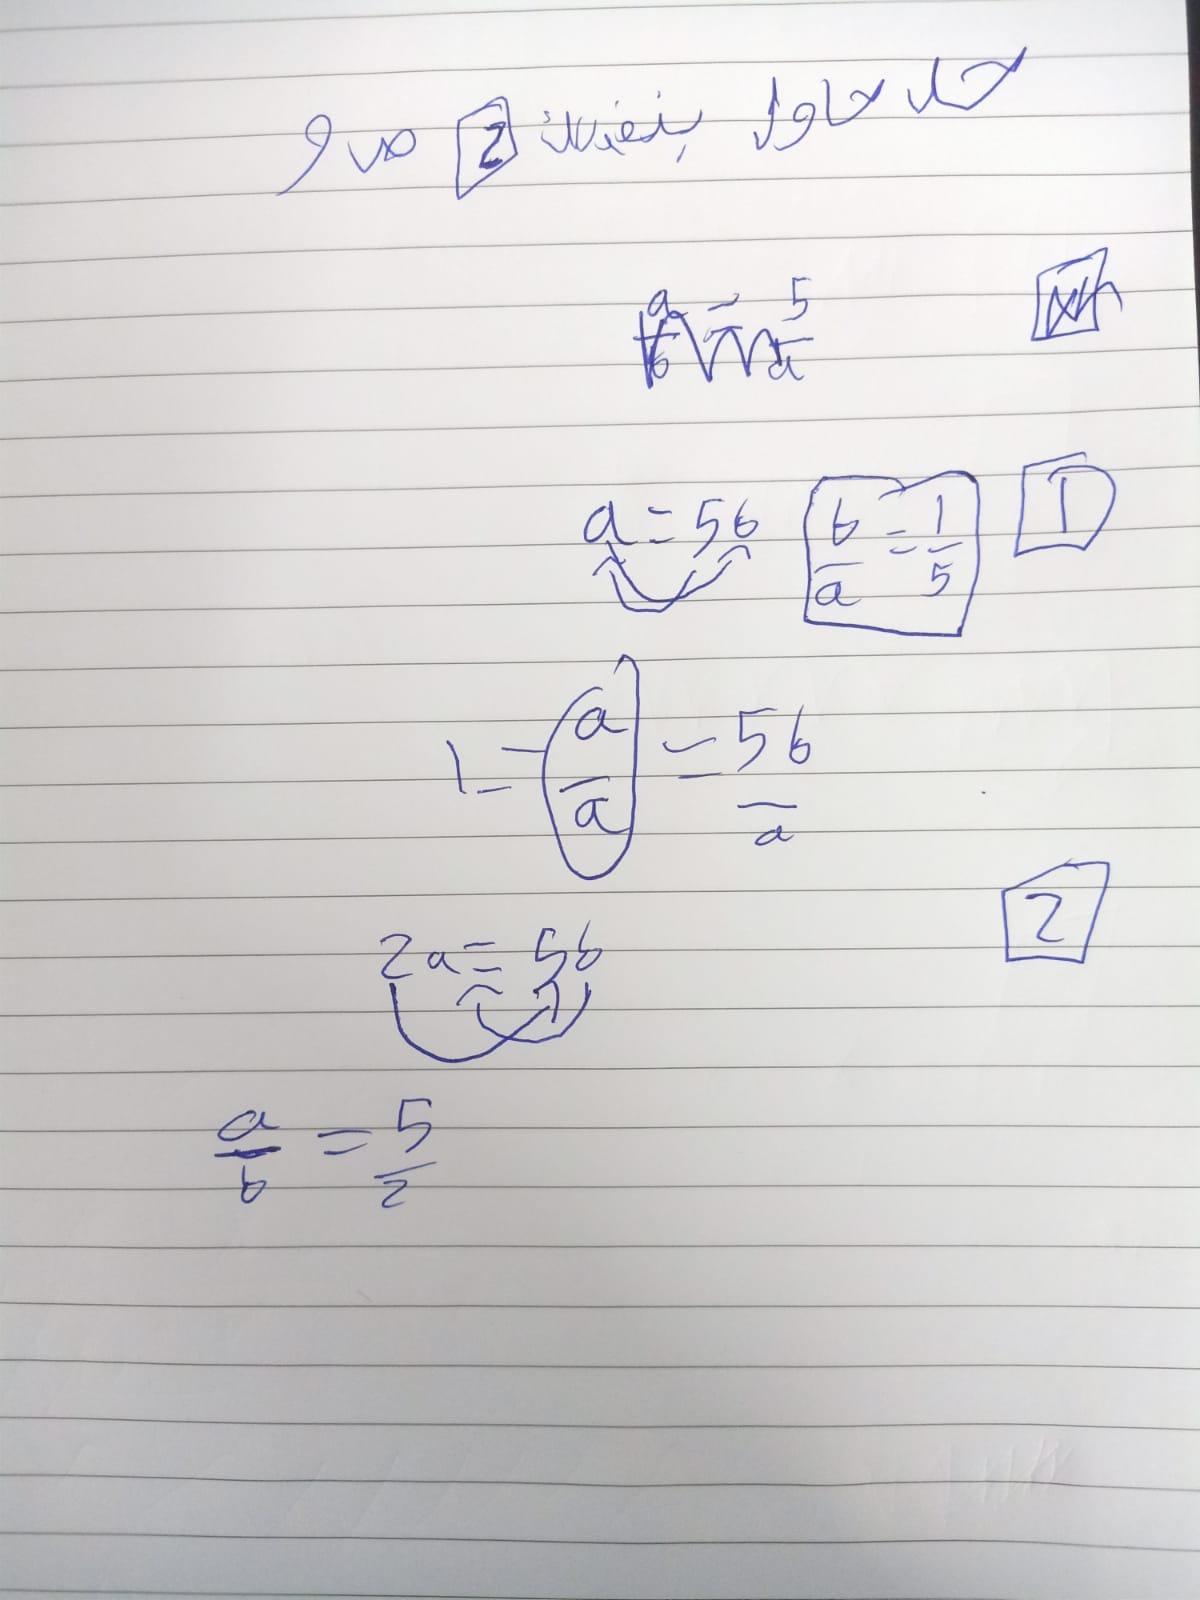 حل حاول بنفسك 2 ص 9
a = 5b b/a = 1/5 1
1 = a/a = 5b/a
2
2a = 5b
a/b = 5/2